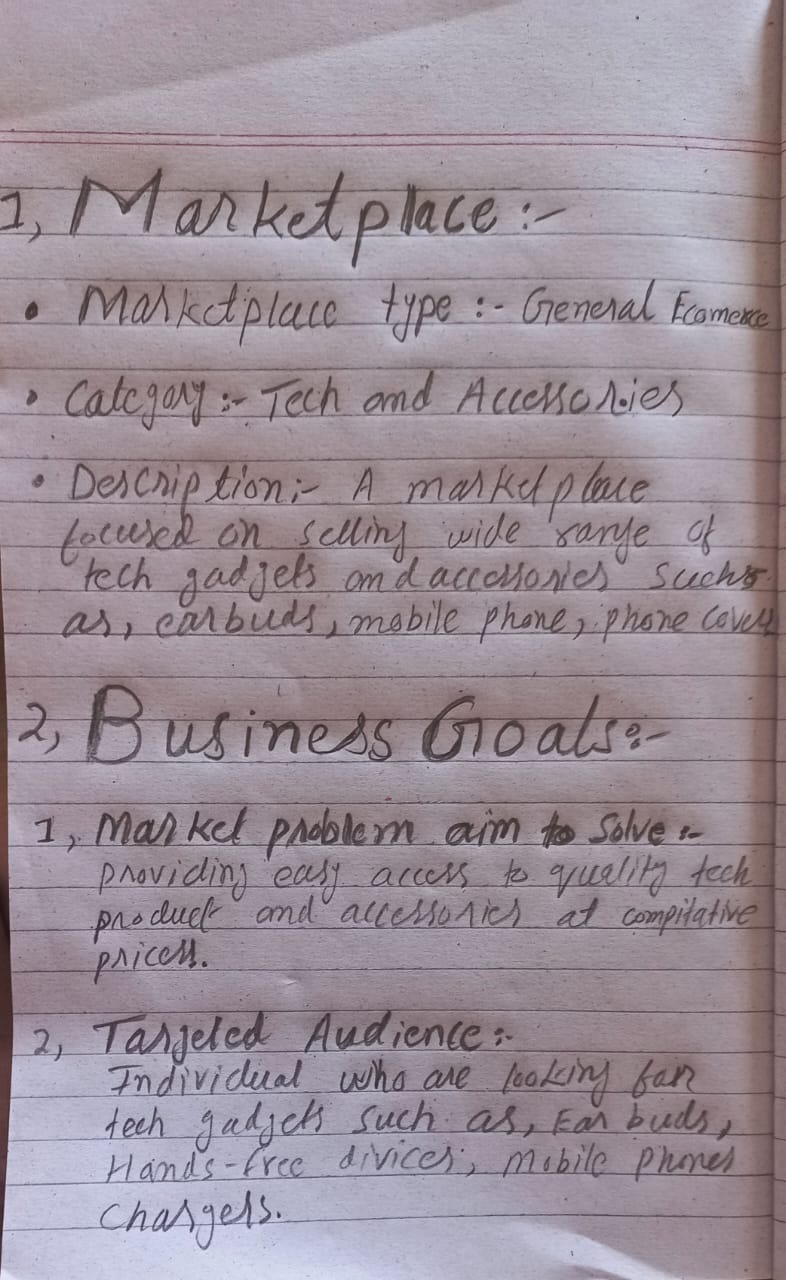 1, Marketplace :-
• Marketplace type :- General Ecomerce
• Category :- Tech and Accessories
• Description :- A marketplace
focused on selling wide range of
tech gadgets and accessories such
as, earbuds, mobile phone, phone covers
2, Business Goals :-
1, Market problem aim to solve :-
providing easy access to quality tech
product and accessories at compitative
prices.
2, Targeted Audience :-
Individual who are looking for
tech gadgets such as, Ear buds,
Hands-free divices, Mobile phones
chargers.